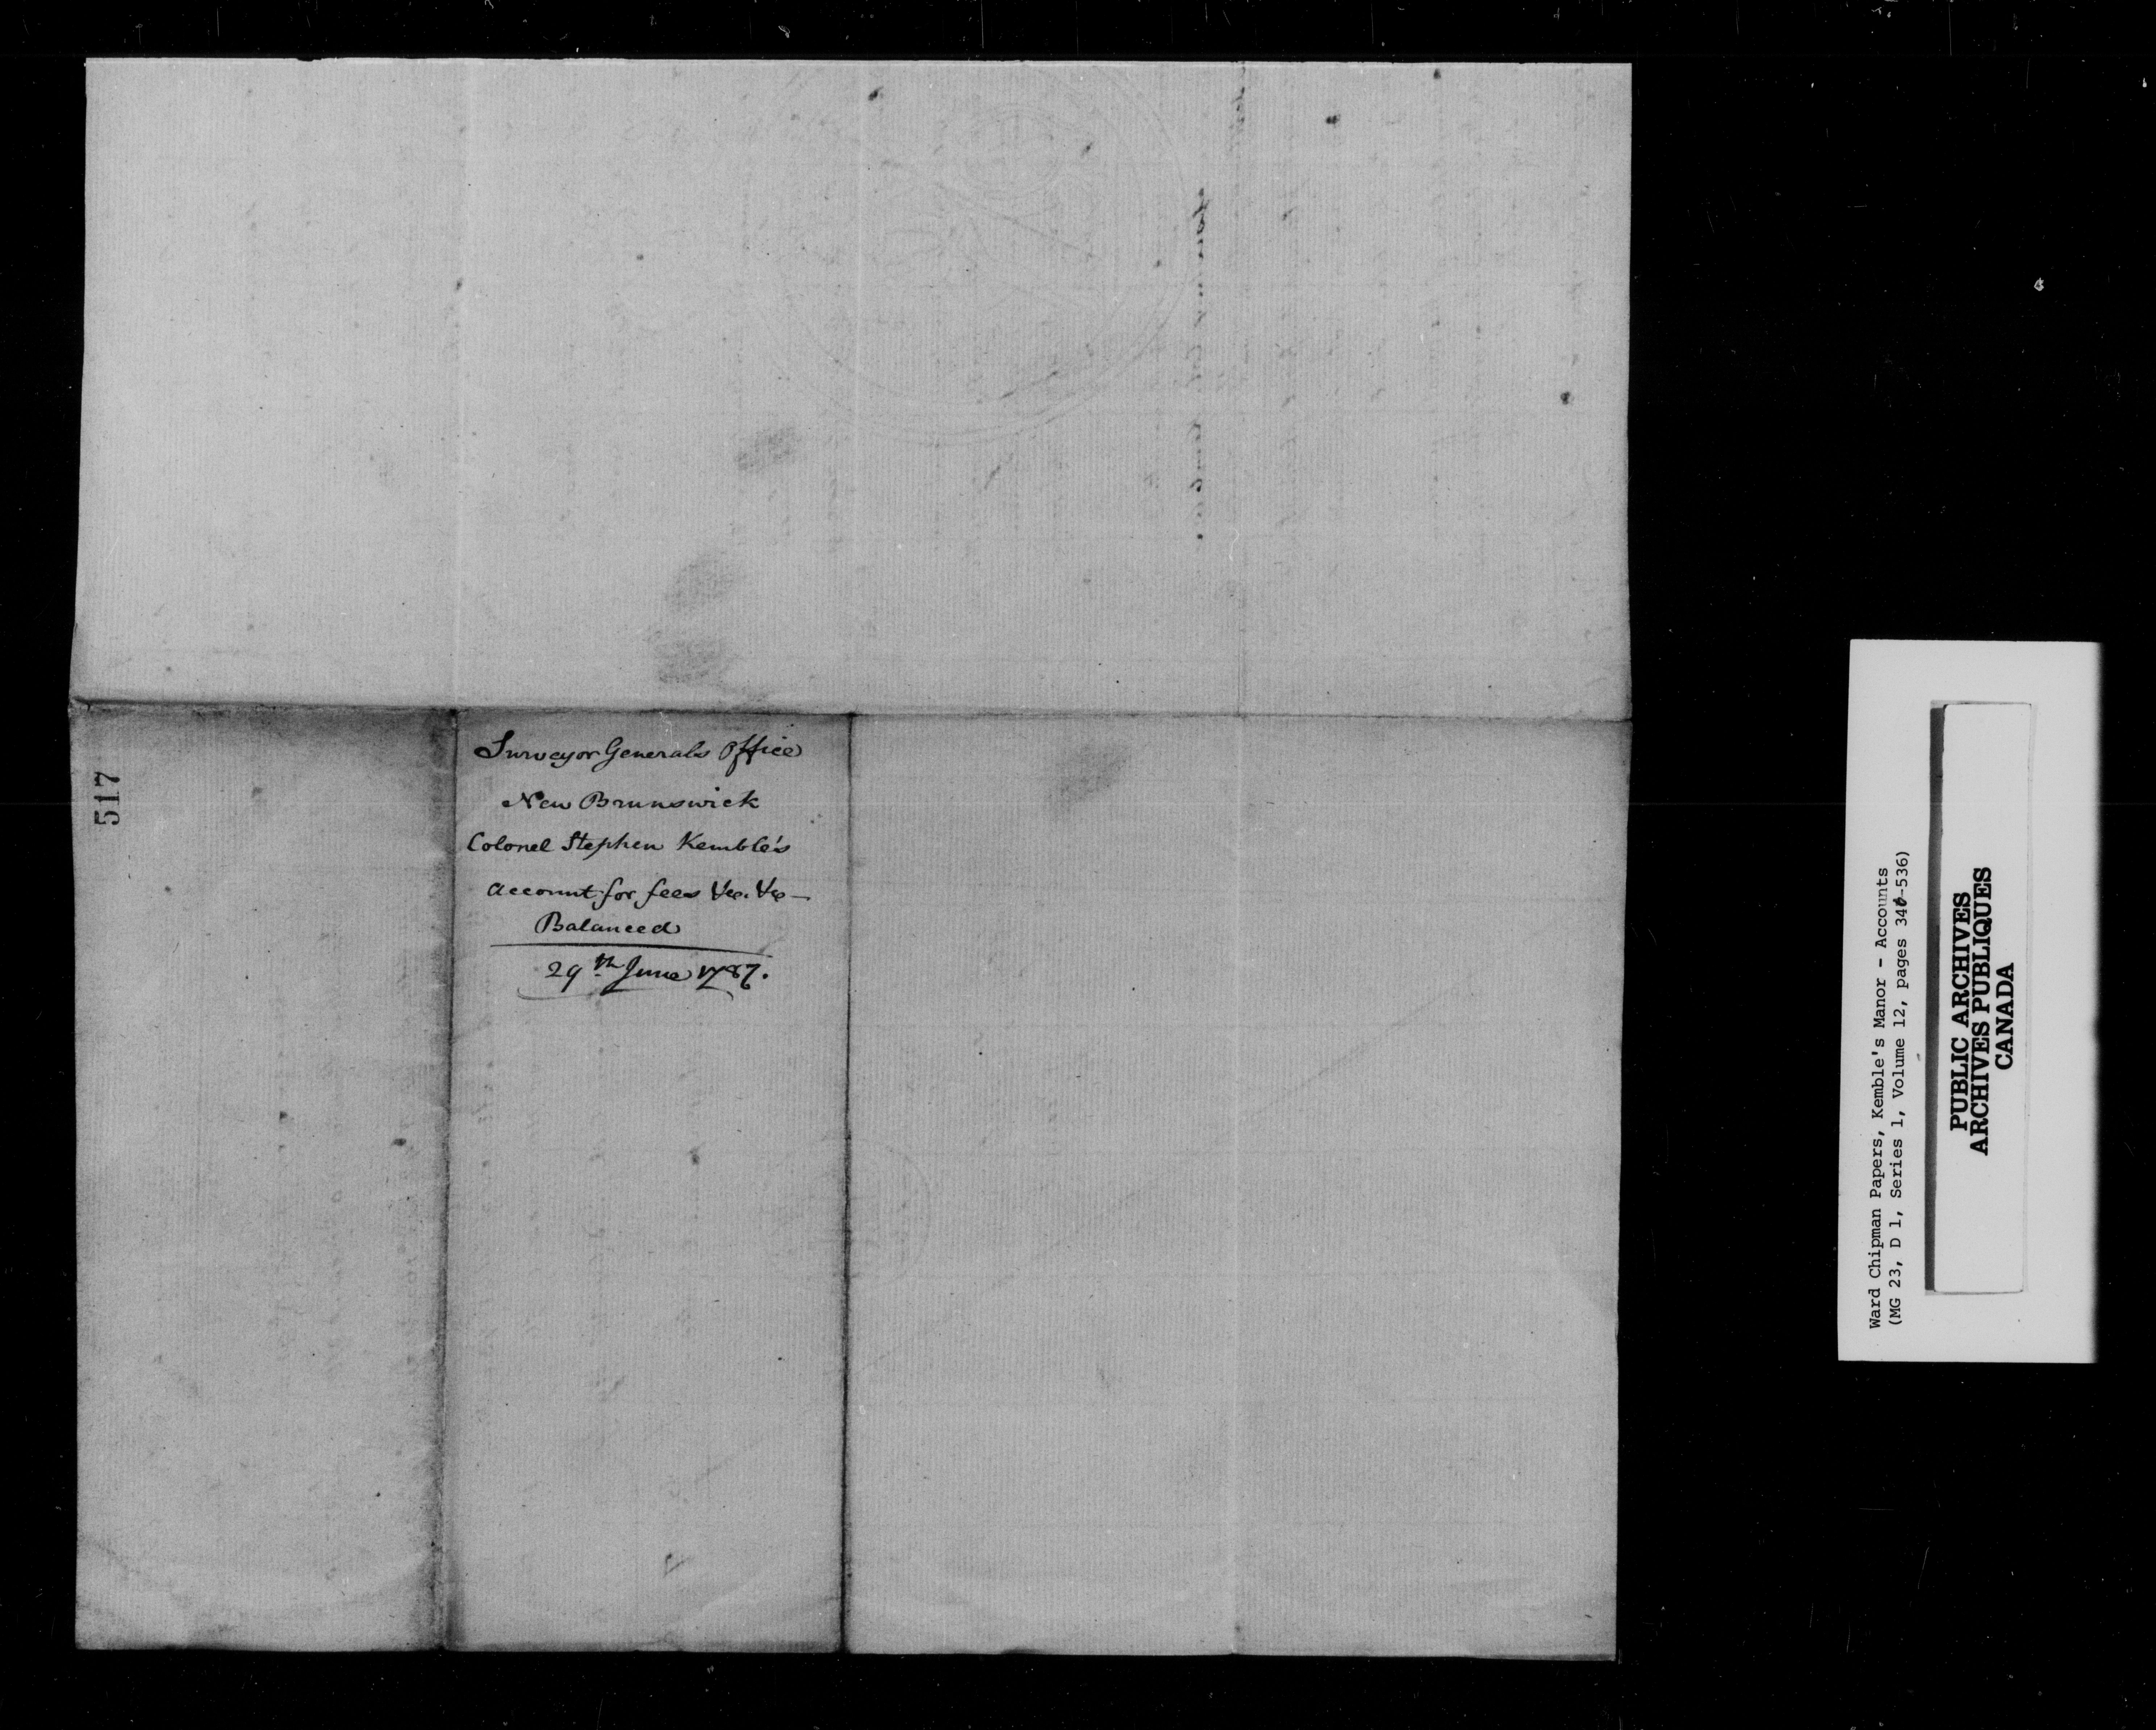 517
Surveyor Generals Office
New Brunswick
Colonel Stephen Kemble's
Account for fees &c. &c —
Balanced
29th June 1787.
Ward Chipman Papers, Kemble's Manor - Accounts
(MG 23, D 1, Series 1, Volume 12, pages 346-536)
PUBLIC ARCHIVES
ARCHIVES PUBLIQUES
CANADA